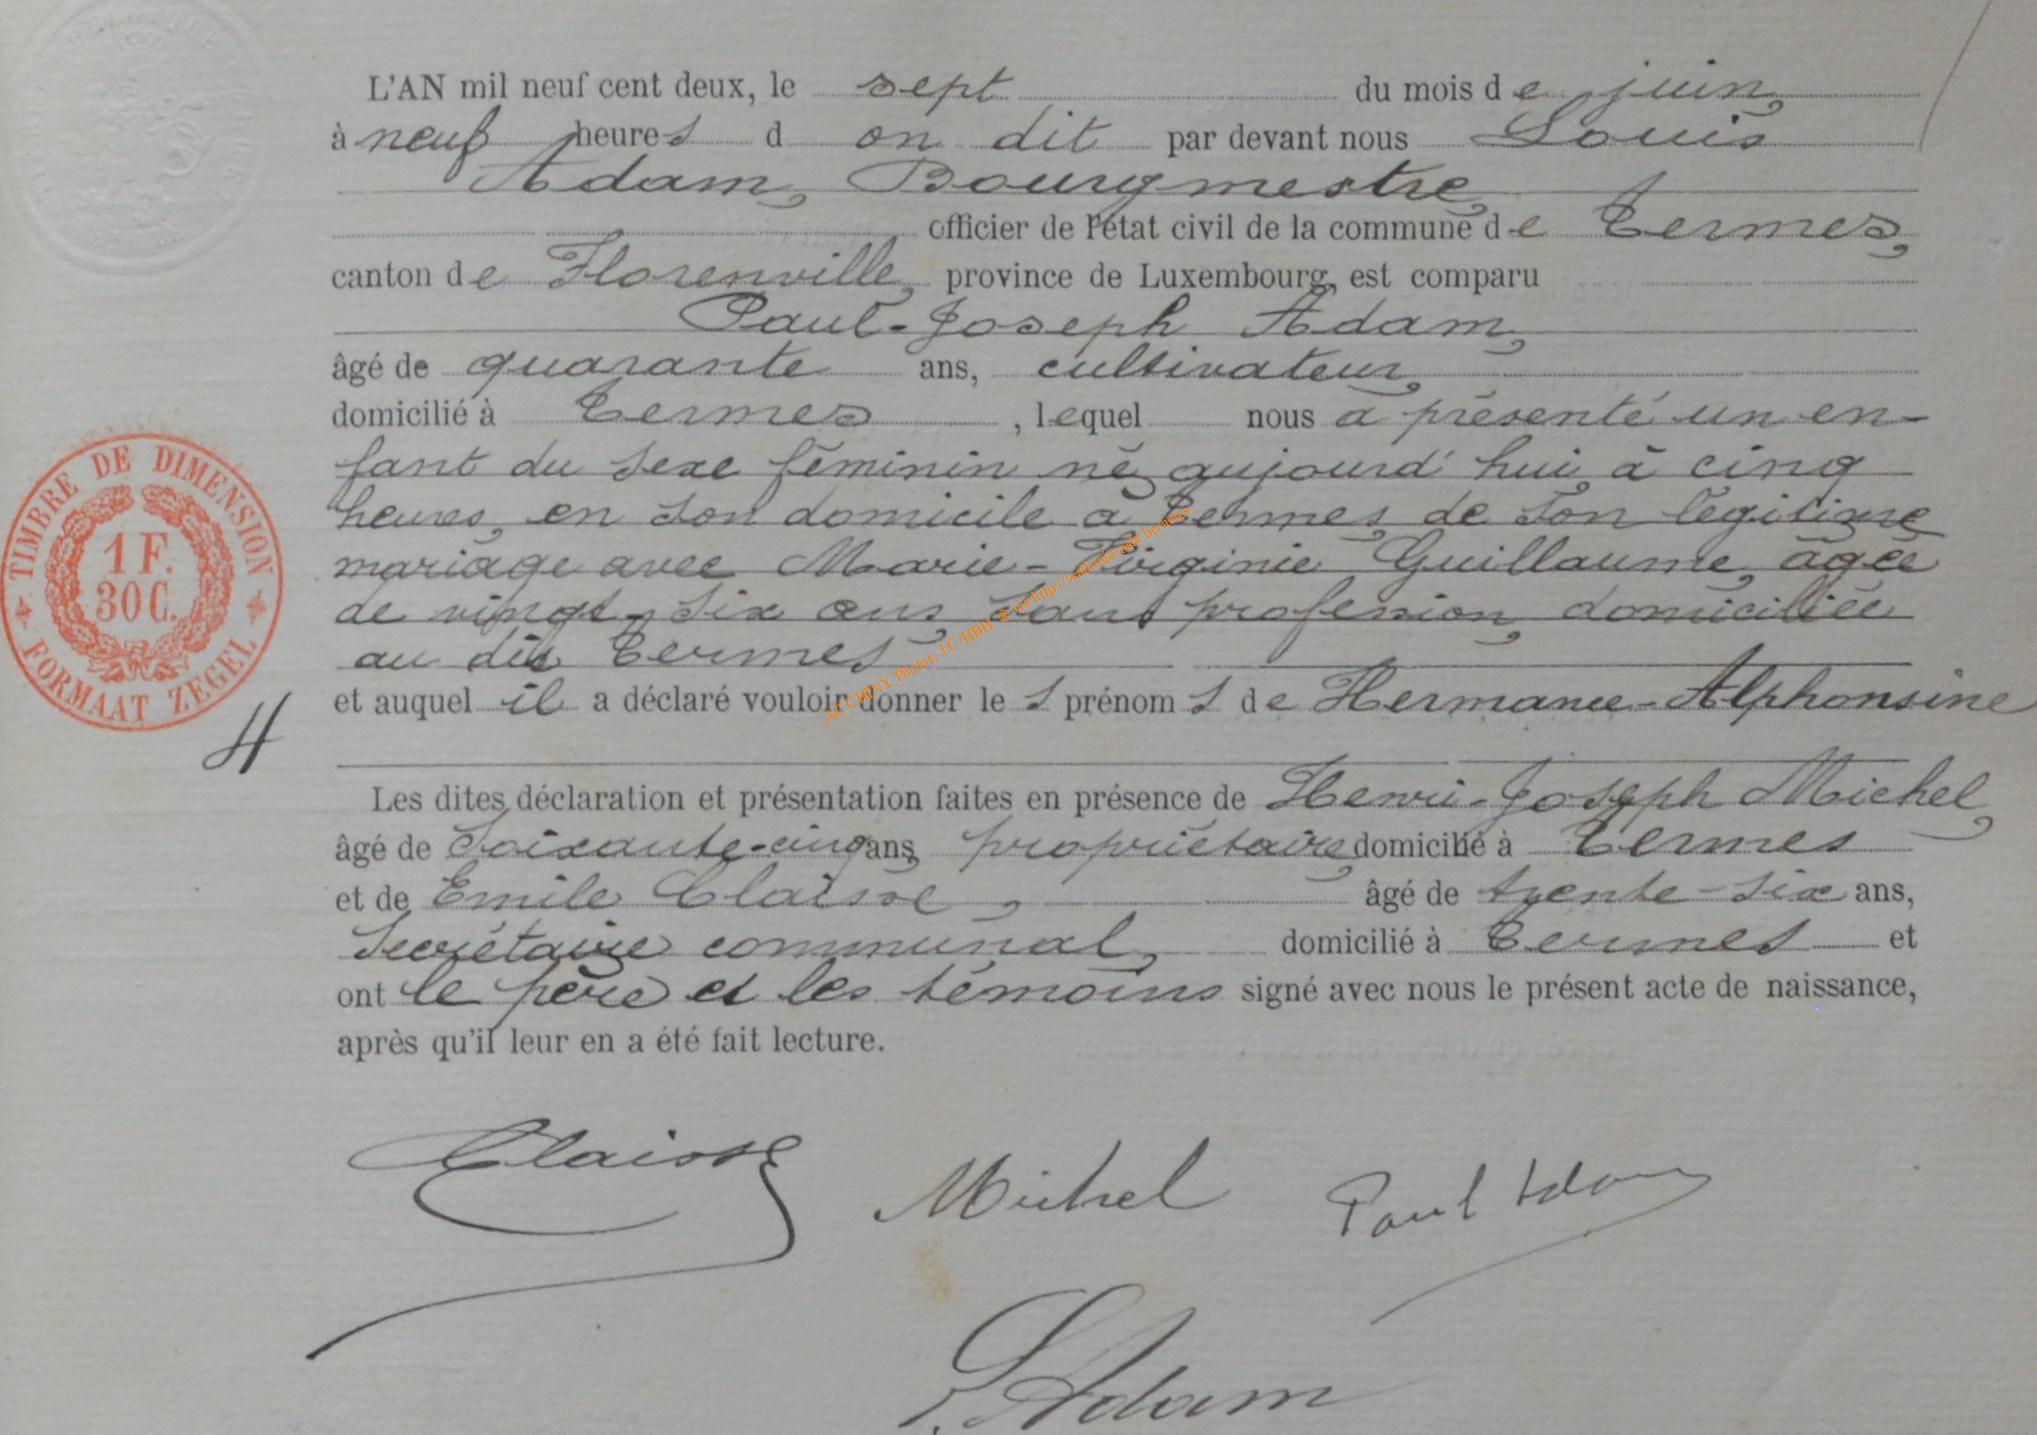 L'AN mil neuf cent deux, le sept du mois de juin,
à neuf heures d on dit par devant nous Louis
Adam, Bourgmestre,
officier de l'état civil de la commune de Termes,
canton de Florenville, province de Luxembourg, est comparu
Paul-Joseph Adam,
âgé de quarante ans, cultivateur,
domicilié à Termes, lequel nous a présenté un en-
fant du sexe féminin né aujourd'hui à cinq
heures, en son domicile à Termes, de son légitime
mariage avec Marie-Virginie Guillaume, âgée
de vingt-six ans, sans profession, domiciliée
au dit Termes
et auquel il a déclaré vouloir donner les prénoms de Hermance-Alphonsine
Les dites déclaration et présentation faites en présence de Henri-Joseph Michel,
âgé de soixante-cinq ans, propriétaire, domicilié à Termes
et de Emile Claisse, âgé de trente-six ans,
secrétaire communal, domicilié à Termes et
ont le père et les témoins signé avec nous le présent acte de naissance,
après qu'il leur en a été fait lecture.
TIMBRE DE DIMENSION
1 F.
30 C.
FORMAAT ZEGEL
H
Claisse Michel Paul Adam
L. Adam